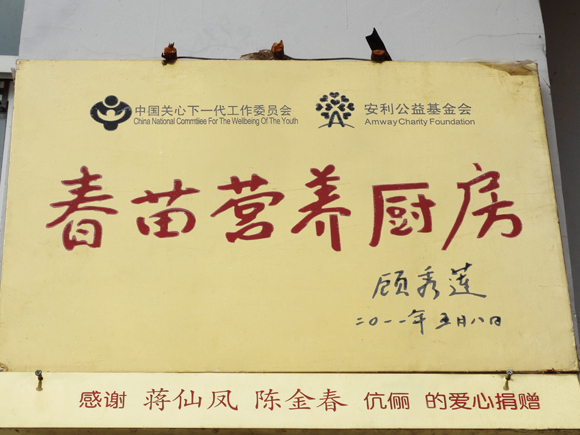 中国关心下一代工作委员会
China National Committee For The Wellbeing Of The Youth
安利公益基金会
Amway Charity Foundation
春苗营养厨房
顾秀莲
二〇一一年五月八日
感谢 蒋仙凤 陈金春 伉俪 的爱心捐赠